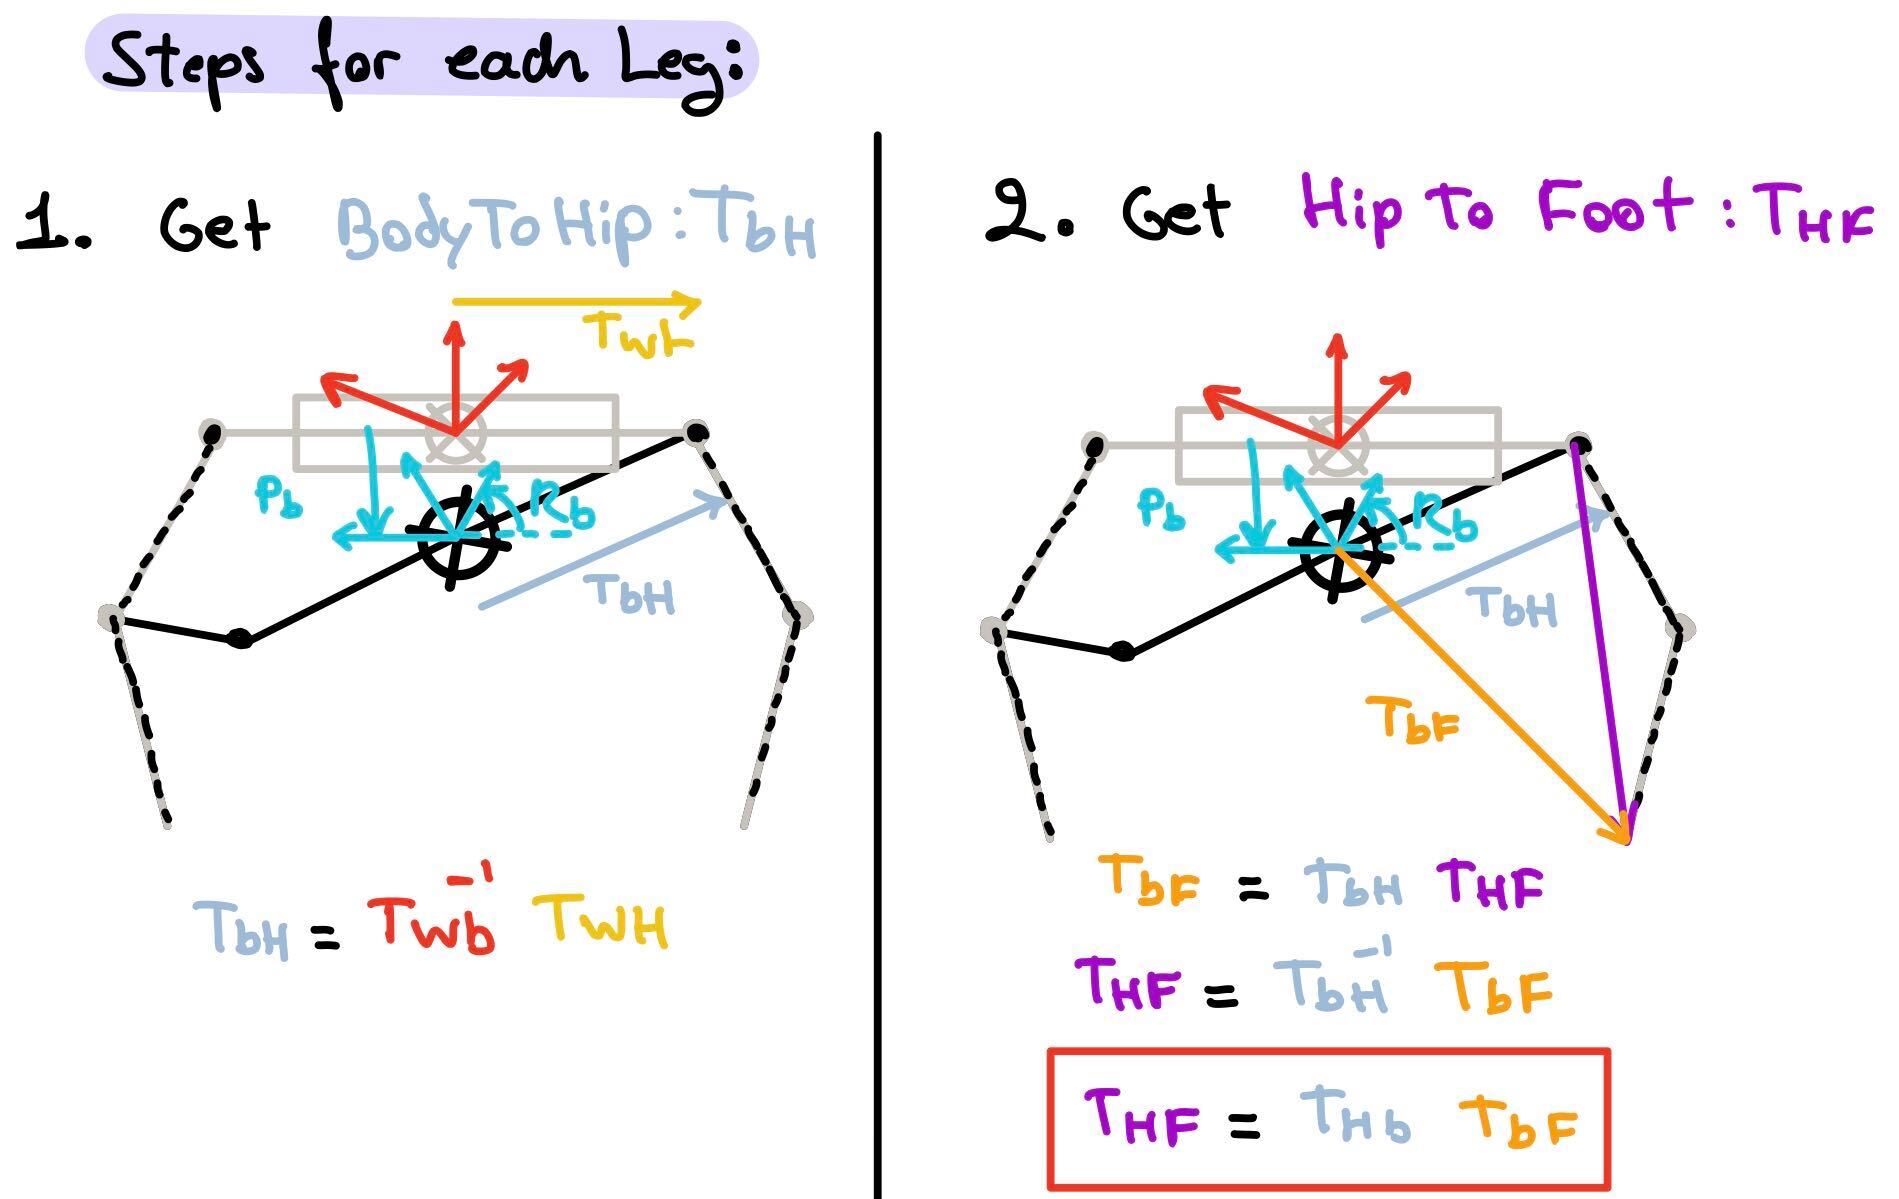 Steps for each Leg:
1. Get BodyToHip : TbH
TWH
Pb
Rb
TbH
TbH = Twb⁻¹ TWH
2. Get Hip To Foot : THF
Pb
Rb
TbH
TbF
TbF = TbH THF
THF = TbH⁻¹ TbF
THF = THb TbF